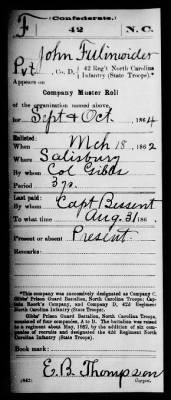 F
(Confederate.)
42
N.C.
John Fulinwider
Pvt, Co. D, 42 Reg't North Carolina
Infantry (State Troops).*
Appears on
Company Muster Roll
of the organization named above,
for Sept & Oct, 1864
Enlisted:
When Mch 18, 1862
Where Salisbury
By whom Col Gibbs
Period 3 yrs.
Last paid:
By whom Capt Bissent
To what time Aug. 31 186 .
Present or absent Present
Remarks:
*This company was successively designated as Company C,
Gibbs' Prison Guard Battalion, North Carolina Troops; Cap-
tain Roark's Company, and Company D, 42d North Carolina
Infantry (State Troops).
Gibbs' Prison Guard Battalion, North Carolina Troops,
consisted of four companies, A to D. The battalion was raised
to a regiment about May, 1862, by the addition of six com-
panies of recruits and designated the 42d Regiment North
Carolina Infantry (State Troops).
Book mark:
E. B. Thompson
(642)
Copyist.